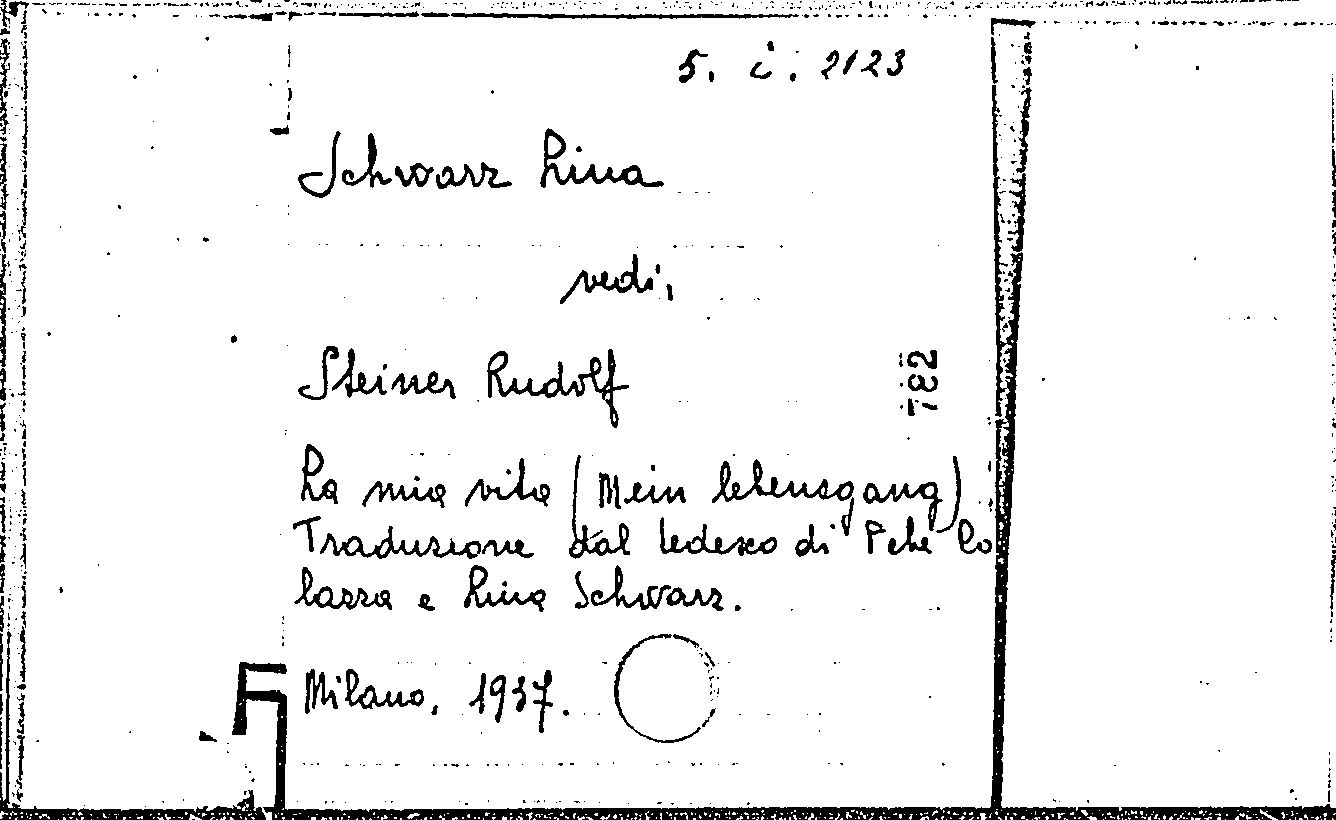 5. i. 2123
Schwarz Lina
vedi,
Steiner Rudolf
782
La mia vita (Mein lebensgang)
Traduzione dal tedesco di
lazza e Lina Schwarz.
Milano, 1937.